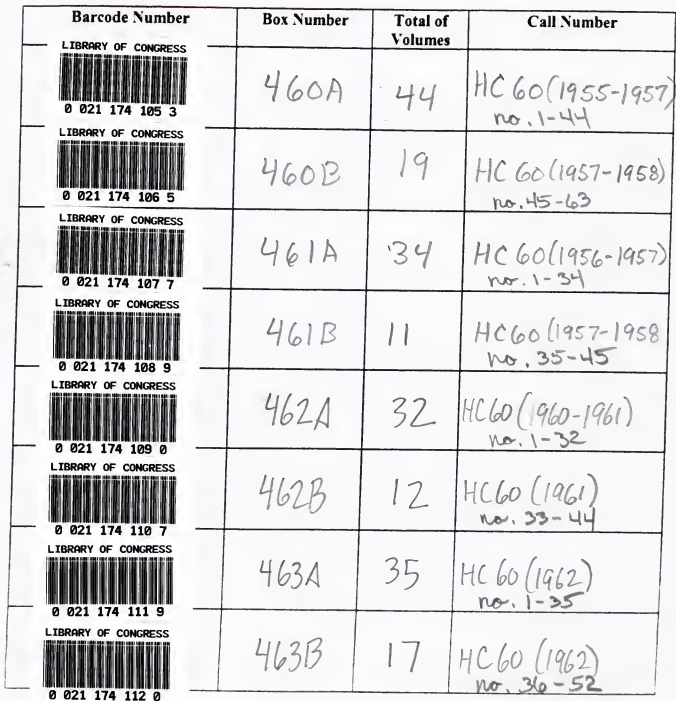 Barcode Number Box Number Total of Volumes Call Number
LIBRARY OF CONGRESS
0 021 174 105 3
460A 44 HC 60(1955-1957)
no. 1-44
LIBRARY OF CONGRESS
0 021 174 106 5
460B 19 HC 60(1957-1958)
no. 45-63
LIBRARY OF CONGRESS
0 021 174 107 7
461A 34 HC 60(1956-1957)
no. 1-34
LIBRARY OF CONGRESS
0 021 174 108 9
461B 11 HC60(1957-1958
no. 35-45
LIBRARY OF CONGRESS
0 021 174 109 0
462A 32 HC60(1960-1961)
no. 1-32
LIBRARY OF CONGRESS
0 021 174 110 7
462B 12 HC60(1961)
no. 33-44
LIBRARY OF CONGRESS
0 021 174 111 9
463A 35 HC 60(1962)
no. 1-35
LIBRARY OF CONGRESS
0 021 174 112 0
463B 17 HC60(1962)
no. 36-52